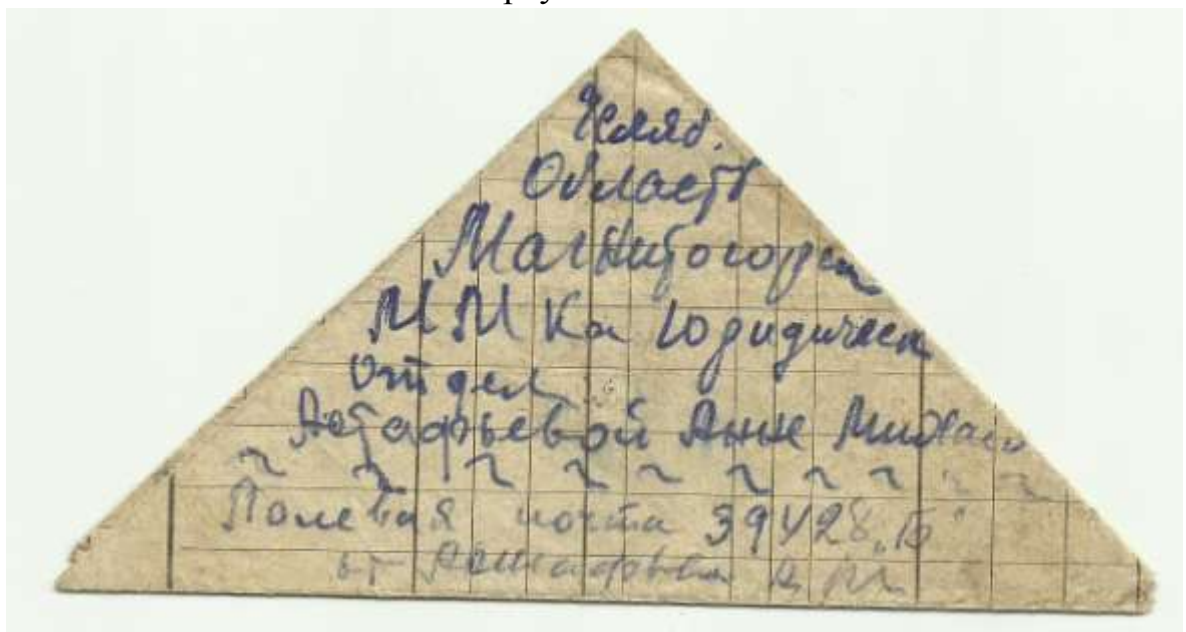 Челяб.
Область
Магнитогорск
ММКа Юридическ
отдел
Астафьевой Анне Михайл
Полевая почта 39428 „Б"
от Астафьева